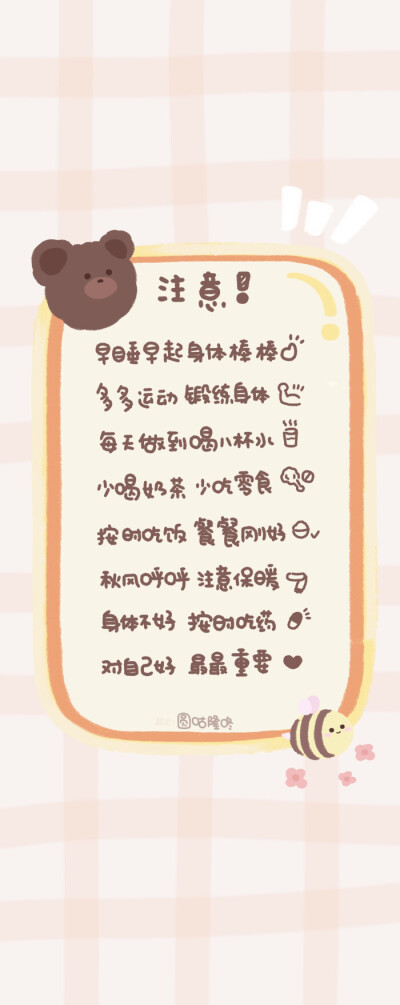 注意!
早睡早起身体棒棒
多多运动 锻炼身体
每天做到喝八杯水
少喝奶茶 少吃零食
按时吃饭 餐餐刚好
秋风呼呼 注意保暖
身体不好 按时吃药
对自己好 最最重要
图咕隆咚